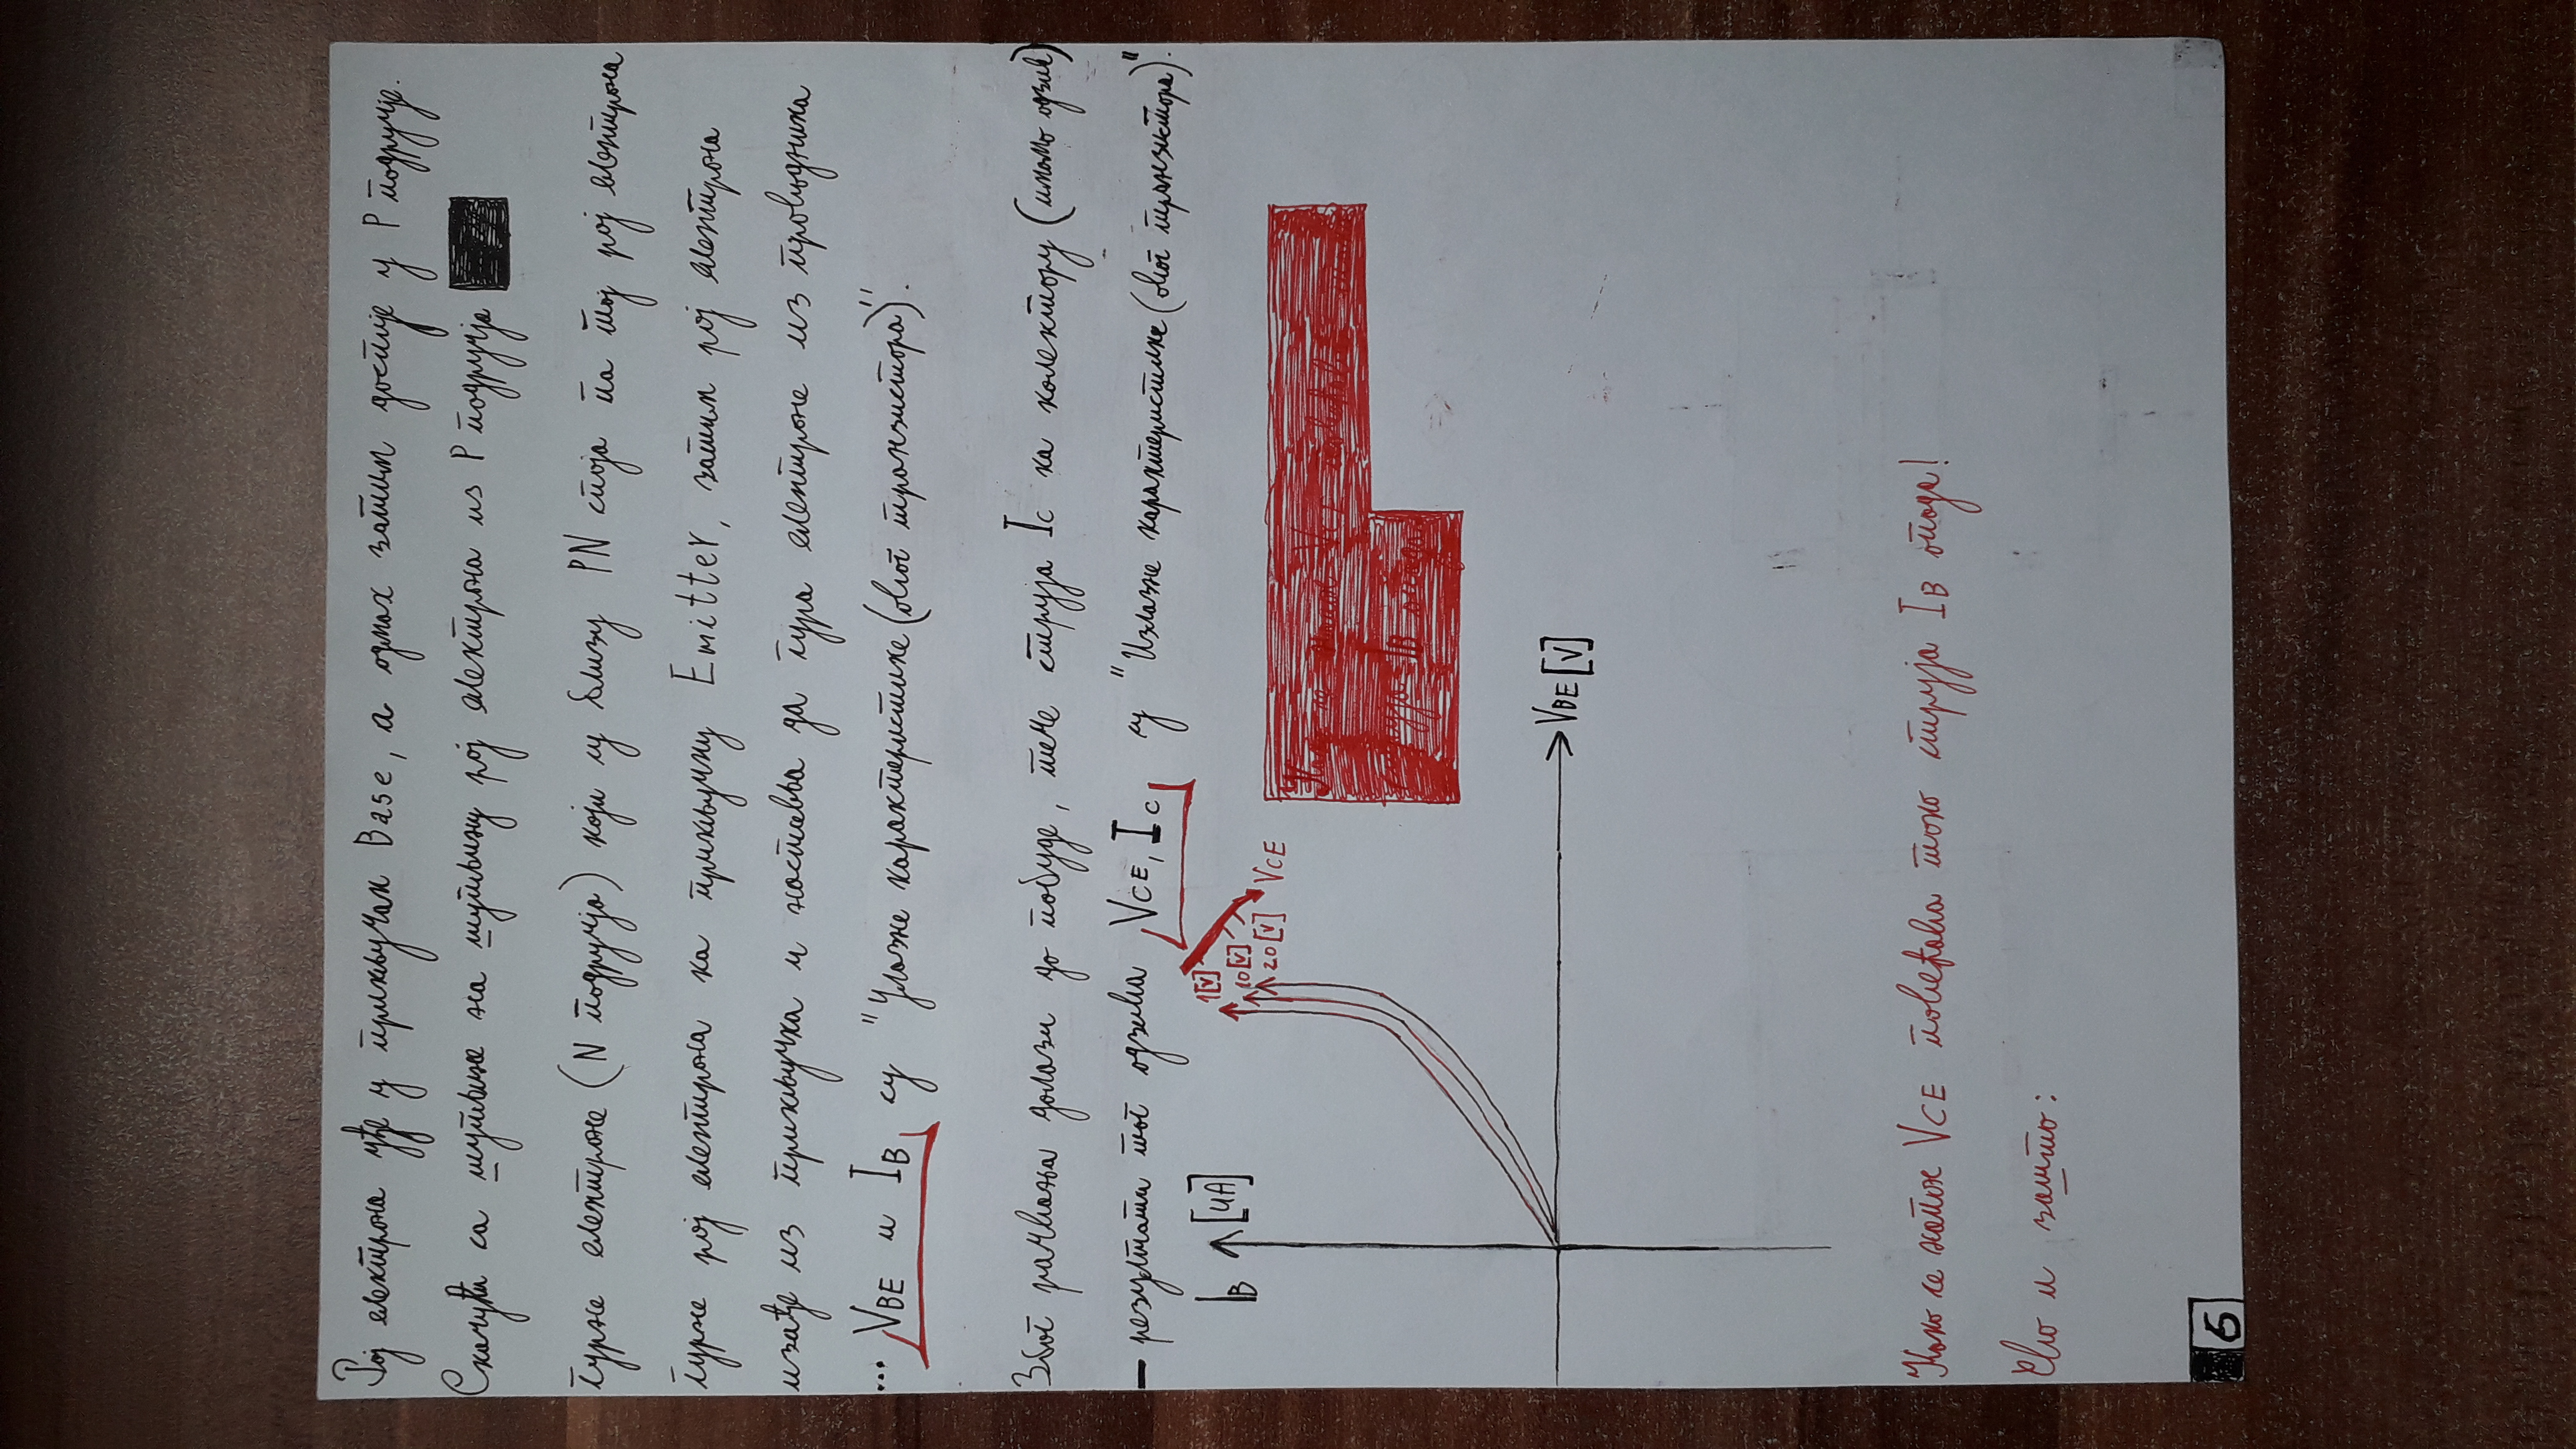 Рој електрона уђе у прикључак Base, а одмах затим доспије у P подручје.
Скачући са шупљине на шупљину рој електрона из P подручја
гурне електроне (N подручја) који су близу PN споја па тој рој електрона
гурне рој електрона ка прикључку Emitter, затим рој електрона
изађе из прикључка и наставља да гура електроне из проводника
... VBE и IB су "Улазне карактеристике (овог транзистора)".
Због рачвања долази до побуде, тече струја Ic ка колектору (имамо одзив)
— резултати тог одзива VCE, Ic су "Излазне карактеристике (овог транзистора)".
IB [μA]
1[V]
10[V]
20[V] VCE
VBE [V]
Како се напон VCE повећава тако струја IB опада!
Ево и зашто:
6